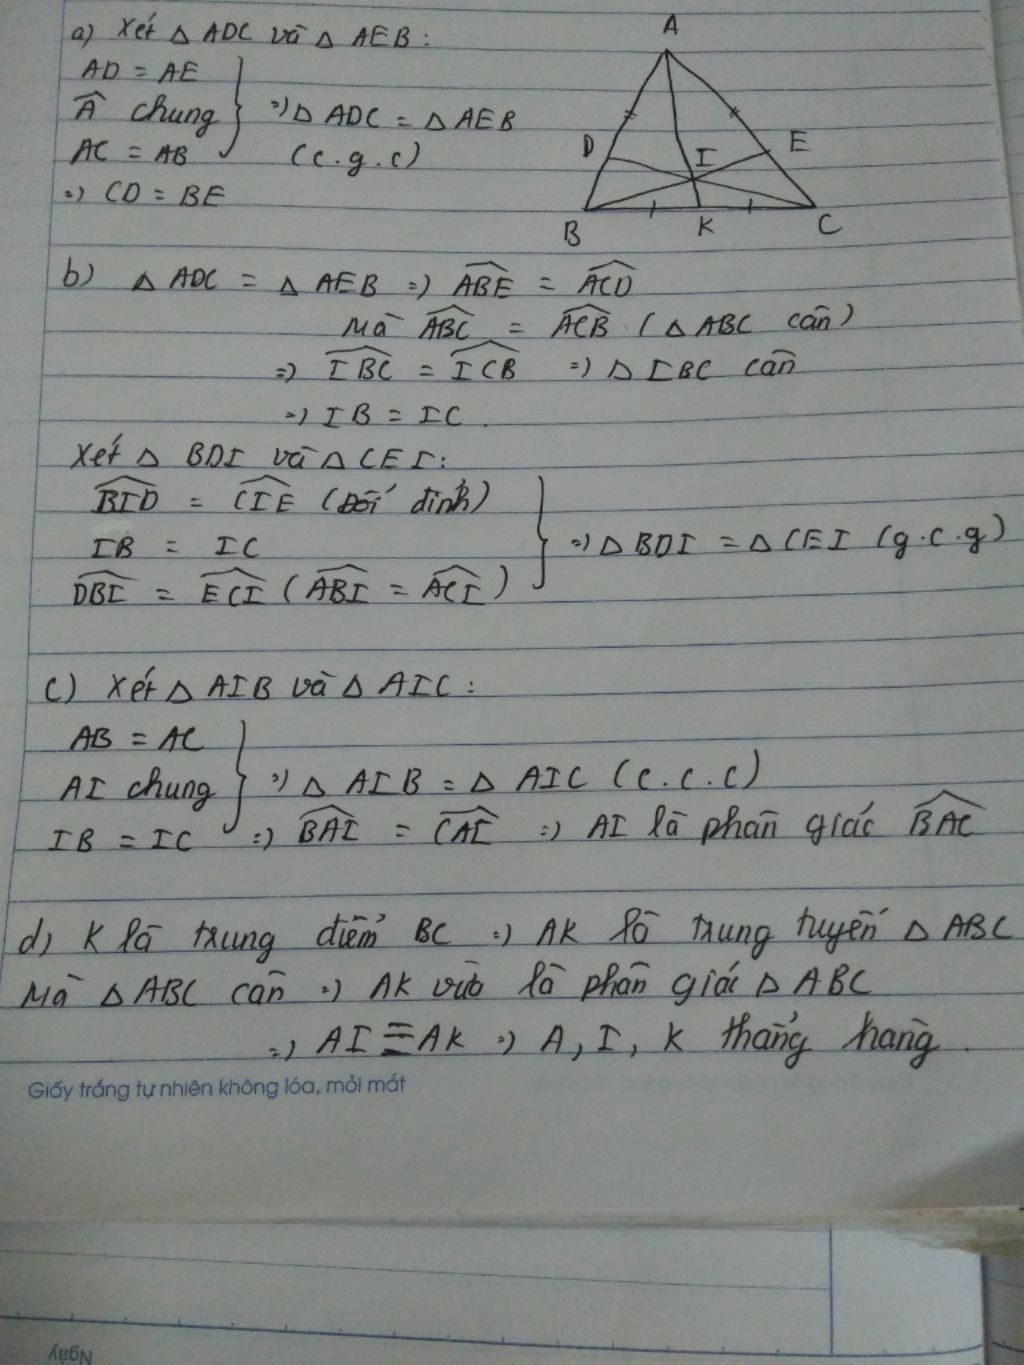 a) Xét △ ADC và △ AEB:
AD = AE
Â chung
AC = AB
=> △ ADC = △ AEB
(c.g.c)
=> CD = BE
A
D
E
I
B
K
C
b) △ ADC = △ AEB => \widehat{ABE} = \widehat{ACD}
Mà \widehat{ABC} = \widehat{ACB} (△ ABC cân)
=> \widehat{IBC} = \widehat{ICB} => △ IBC cân
=> IB = IC.
Xét △ BDI và △ CEI:
\widehat{BID} = \widehat{CIE} (Đối đỉnh)
IB = IC
\widehat{DBI} = \widehat{ECI} (\widehat{ABI} = \widehat{ACI})
=> △ BDI = △ CEI (g.c.g)
c) Xét △ AIB và △ AIC:
AB = AC
AI chung
IB = IC
=> △ AIB = △ AIC (c.c.c)
=> \widehat{BAI} = \widehat{CAI} => AI là phân giác \widehat{BAC}
d) K là trung điểm BC => AK là trung tuyến △ ABC
Mà △ ABC cân => AK vừa là phân giác △ ABC
=> AI ≡ AK => A, I, K thẳng hàng.
Giấy trắng tự nhiên không lóa, mỏi mắt
Ngày